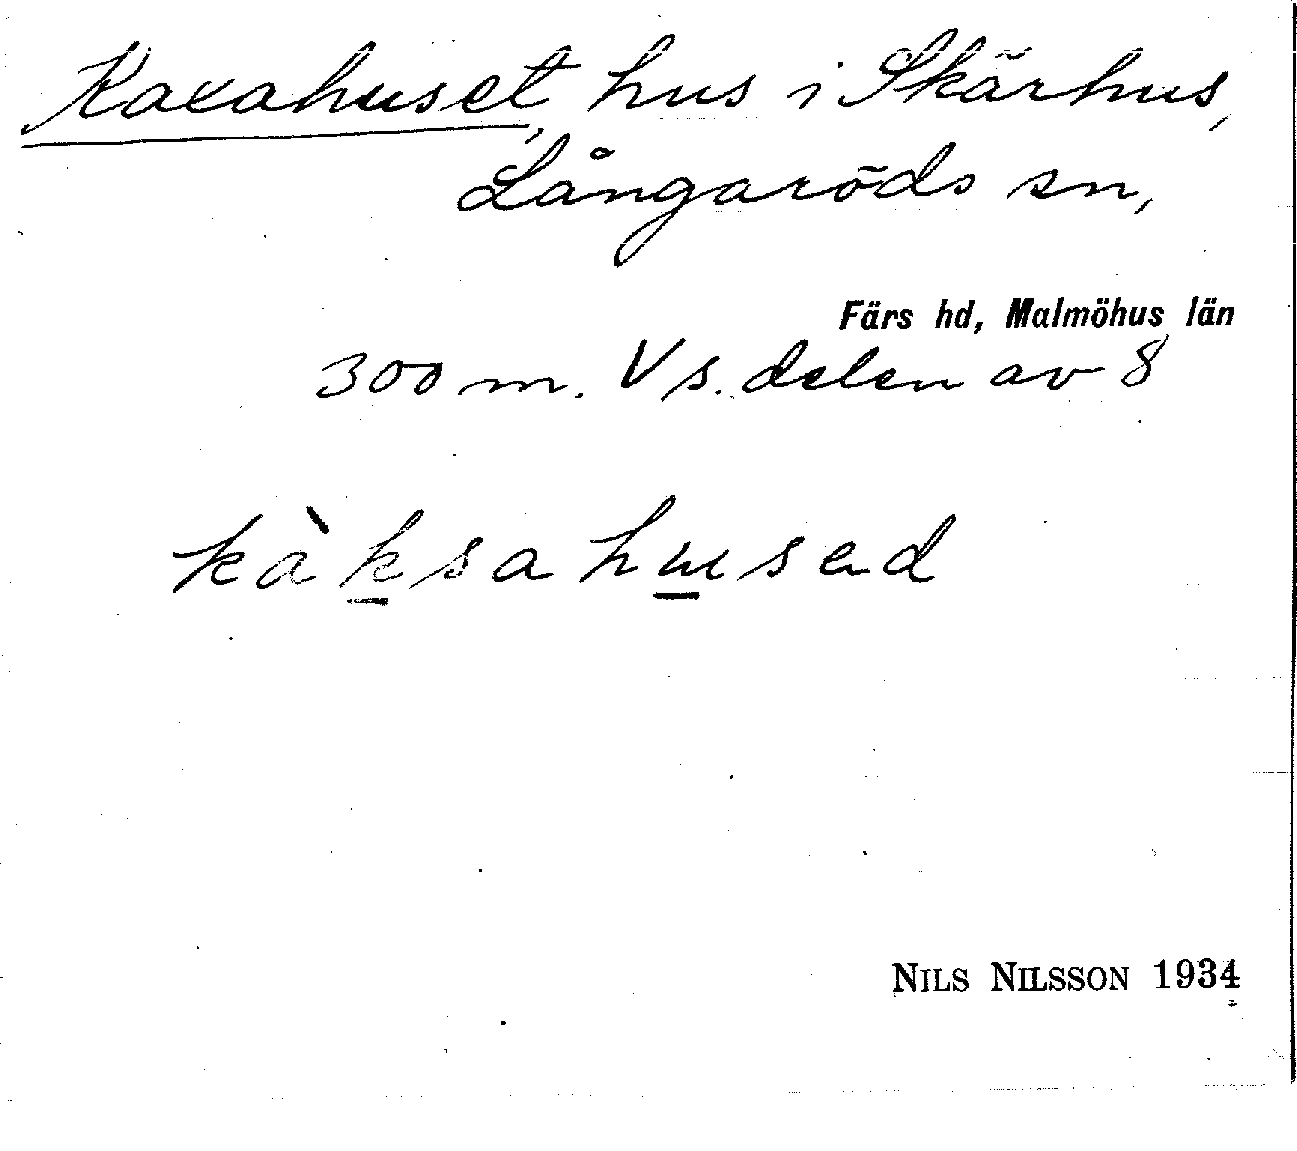 Kaxahuset, hus i Skärhus,
Långaröds sn,
Färs hd, Malmöhus län
300 m. V s. delen av 8
kàksahused
NILS NILSSON 1934